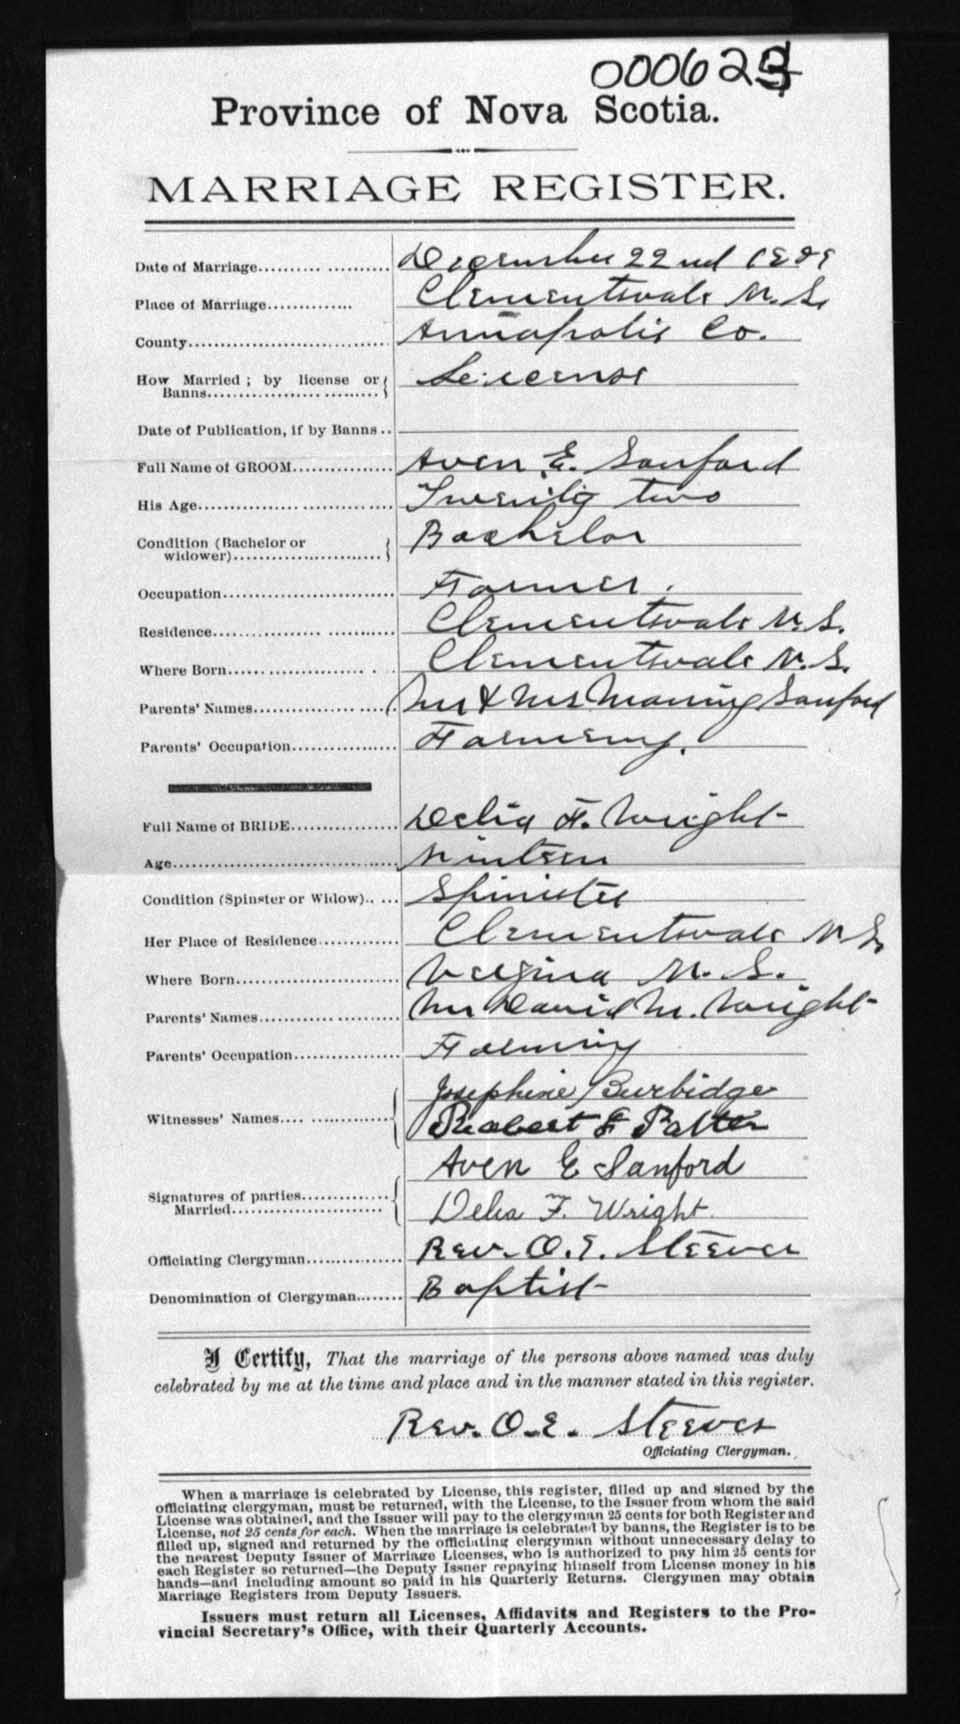 000623
Province of Nova Scotia.
MARRIAGE REGISTER.
Date of Marriage.................... December 22nd
Place of Marriage.............. Clementsvale N. S.
County................................ Annapolis Co.
How Married ; by license or License
Banns..............................
Date of Publication, if by Banns..
Full Name of GROOM................ Aven E. Sanford
His Age.............................. Twenty two
Condition (Bachelor or Bachelor
widower)...........................
Occupation............................ Farmer.
Residence............................ Clementsvale N. S.
Where Born....................... Clementsvale N. S.
Parents' Names...................... Mr & Mrs Sanford
Parents' Occupation................. Farming.
Full Name of BRIDE................. Delia F. Wright
Age..................................... Ninteen
Condition (Spinster or Widow)..... Spinster
Her Place of Residence............ Clementsvale N S.
Where Born......................... Virginia N. S.
Parents' Names..................... Mr David M. Wright
Parents' Occupation................ Farming
Josephine Burbidge
Witnesses' Names.................. Robert F Potter
Aven E Sanford
Signatures of parties..............
Married......................... Delia F. Wright
Officiating Clergyman............... Rev. O. E. Steeves
Denomination of Clergyman........ Baptist
I Certify, That the marriage of the persons above named was duly
celebrated by me at the time and place and in the manner stated in this register.
Rev. O. E. Steeves
Officiating Clergyman.
When a marriage is celebrated by License, this register, filled up and signed by the
officiating clergyman, must be returned, with the License, to the Issuer from whom the said
License was obtained, and the Issuer will pay to the clergyman 25 cents for both Register and
License, not 25 cents for each. When the marriage is celebrated by banns, the Register is to be
filled up, signed and returned by the officiating clergyman without unnecessary delay to
the nearest Deputy Issuer of Marriage Licenses, who is authorized to pay him 25 cents for
each Register so returned—the Deputy Issuer repaying himself from License money in his
hands—and including amount so paid in his Quarterly Returns. Clergymen may obtain
Marriage Registers from Deputy Issuers.
Issuers must return all Licenses, Affidavits and Registers to the Pro-
vincial Secretary's Office, with their Quarterly Accounts.